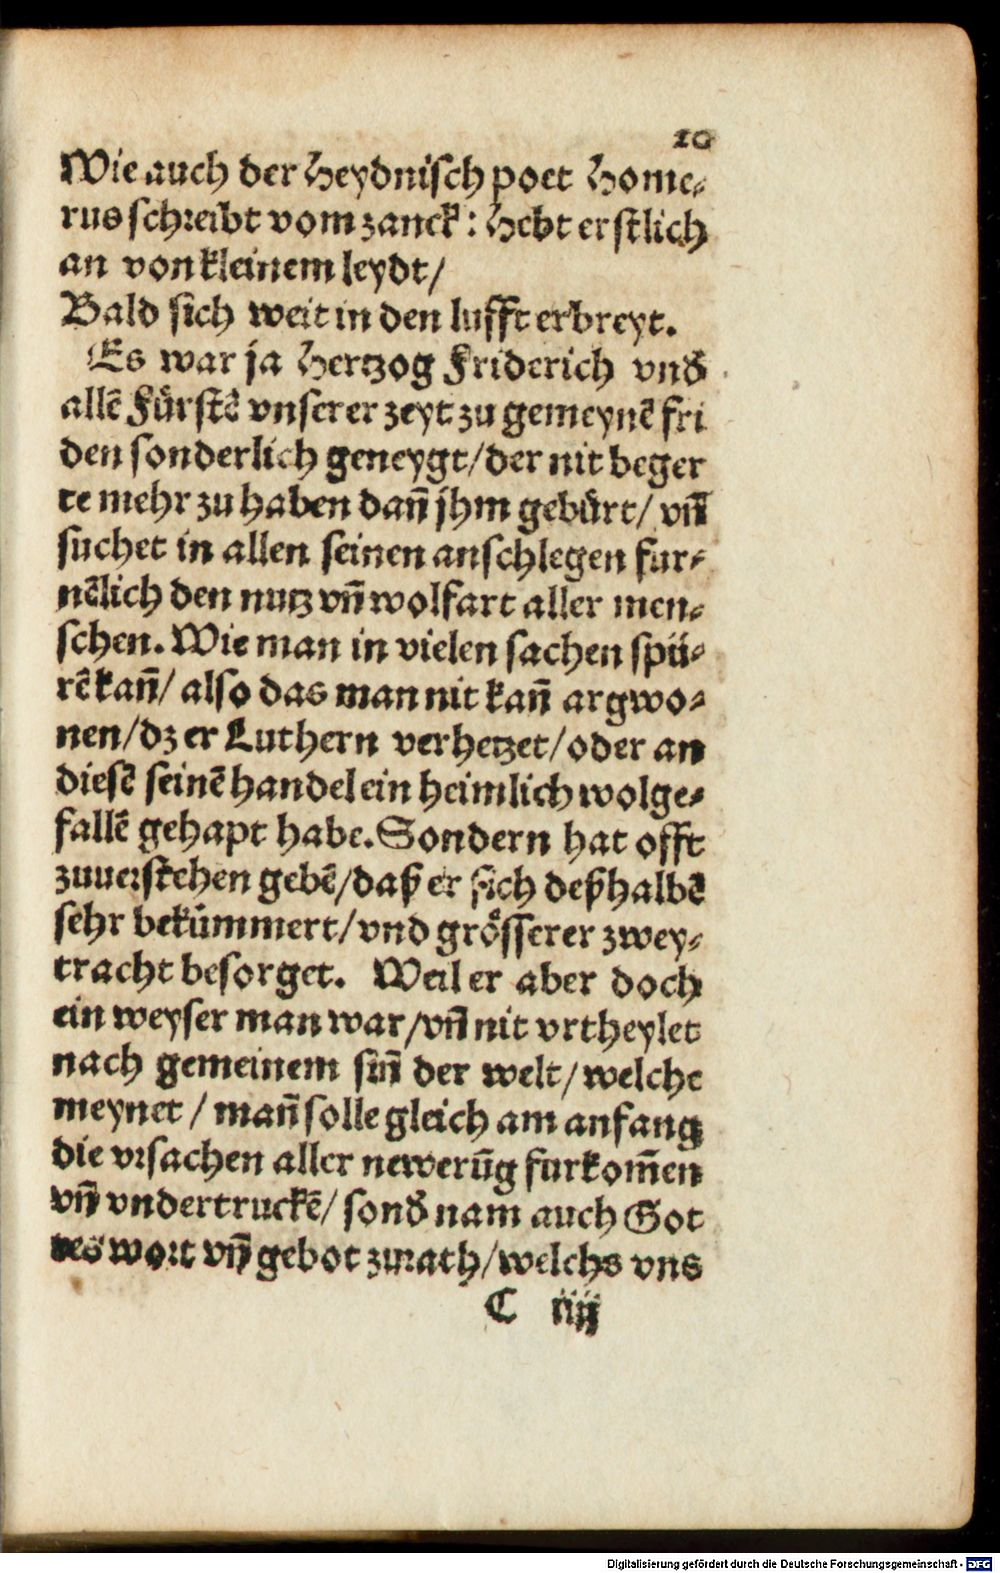 20
Wie auch der Heydnisch poet Home⸗
rus schreibt vom zanck: Hebt erstlich
an von kleinem leydt/
Bald sich weit in den lufft erbreyt.
Es war ja Hertzog Friderich vnd
allē Fürstē vnserer zeyt zu gemeynē fri
den sonderlich geneygt/der nit beger
te mehr zu haben dañ jhm gebürt/ vñ
suchet in allen seinen anschlegen fur⸗
nēlich den nutz vñ wolfart aller men⸗
schen. Wie man in vielen sachen spü⸗
rē kañ/ also das man nit kañ argwo⸗
nen/dz er Luthern verhetzet/oder an
diesē seinē handel ein heimlich wolge⸗
fallē gehapt habe. Sondern hat offt
zuuerstehen gebē/daß er sich deßhalbē
sehr bekümmert/vnd grösserer zwey⸗
tracht besorget. Weil er aber doch
ein weyser man war/vñ nit vrtheylet
nach gemeinem siñ der welt/welche
meynet / mañ solle gleich am anfang
die vrsachen aller newerūg furkom̄en
vñ vndertruckē/ sond̄ nam auch Got
tes wort vñ gebot zurath/welchs vns
C iiij
Digitalisierung gefördert durch die Deutsche Forschungsgemeinschaft - DFG